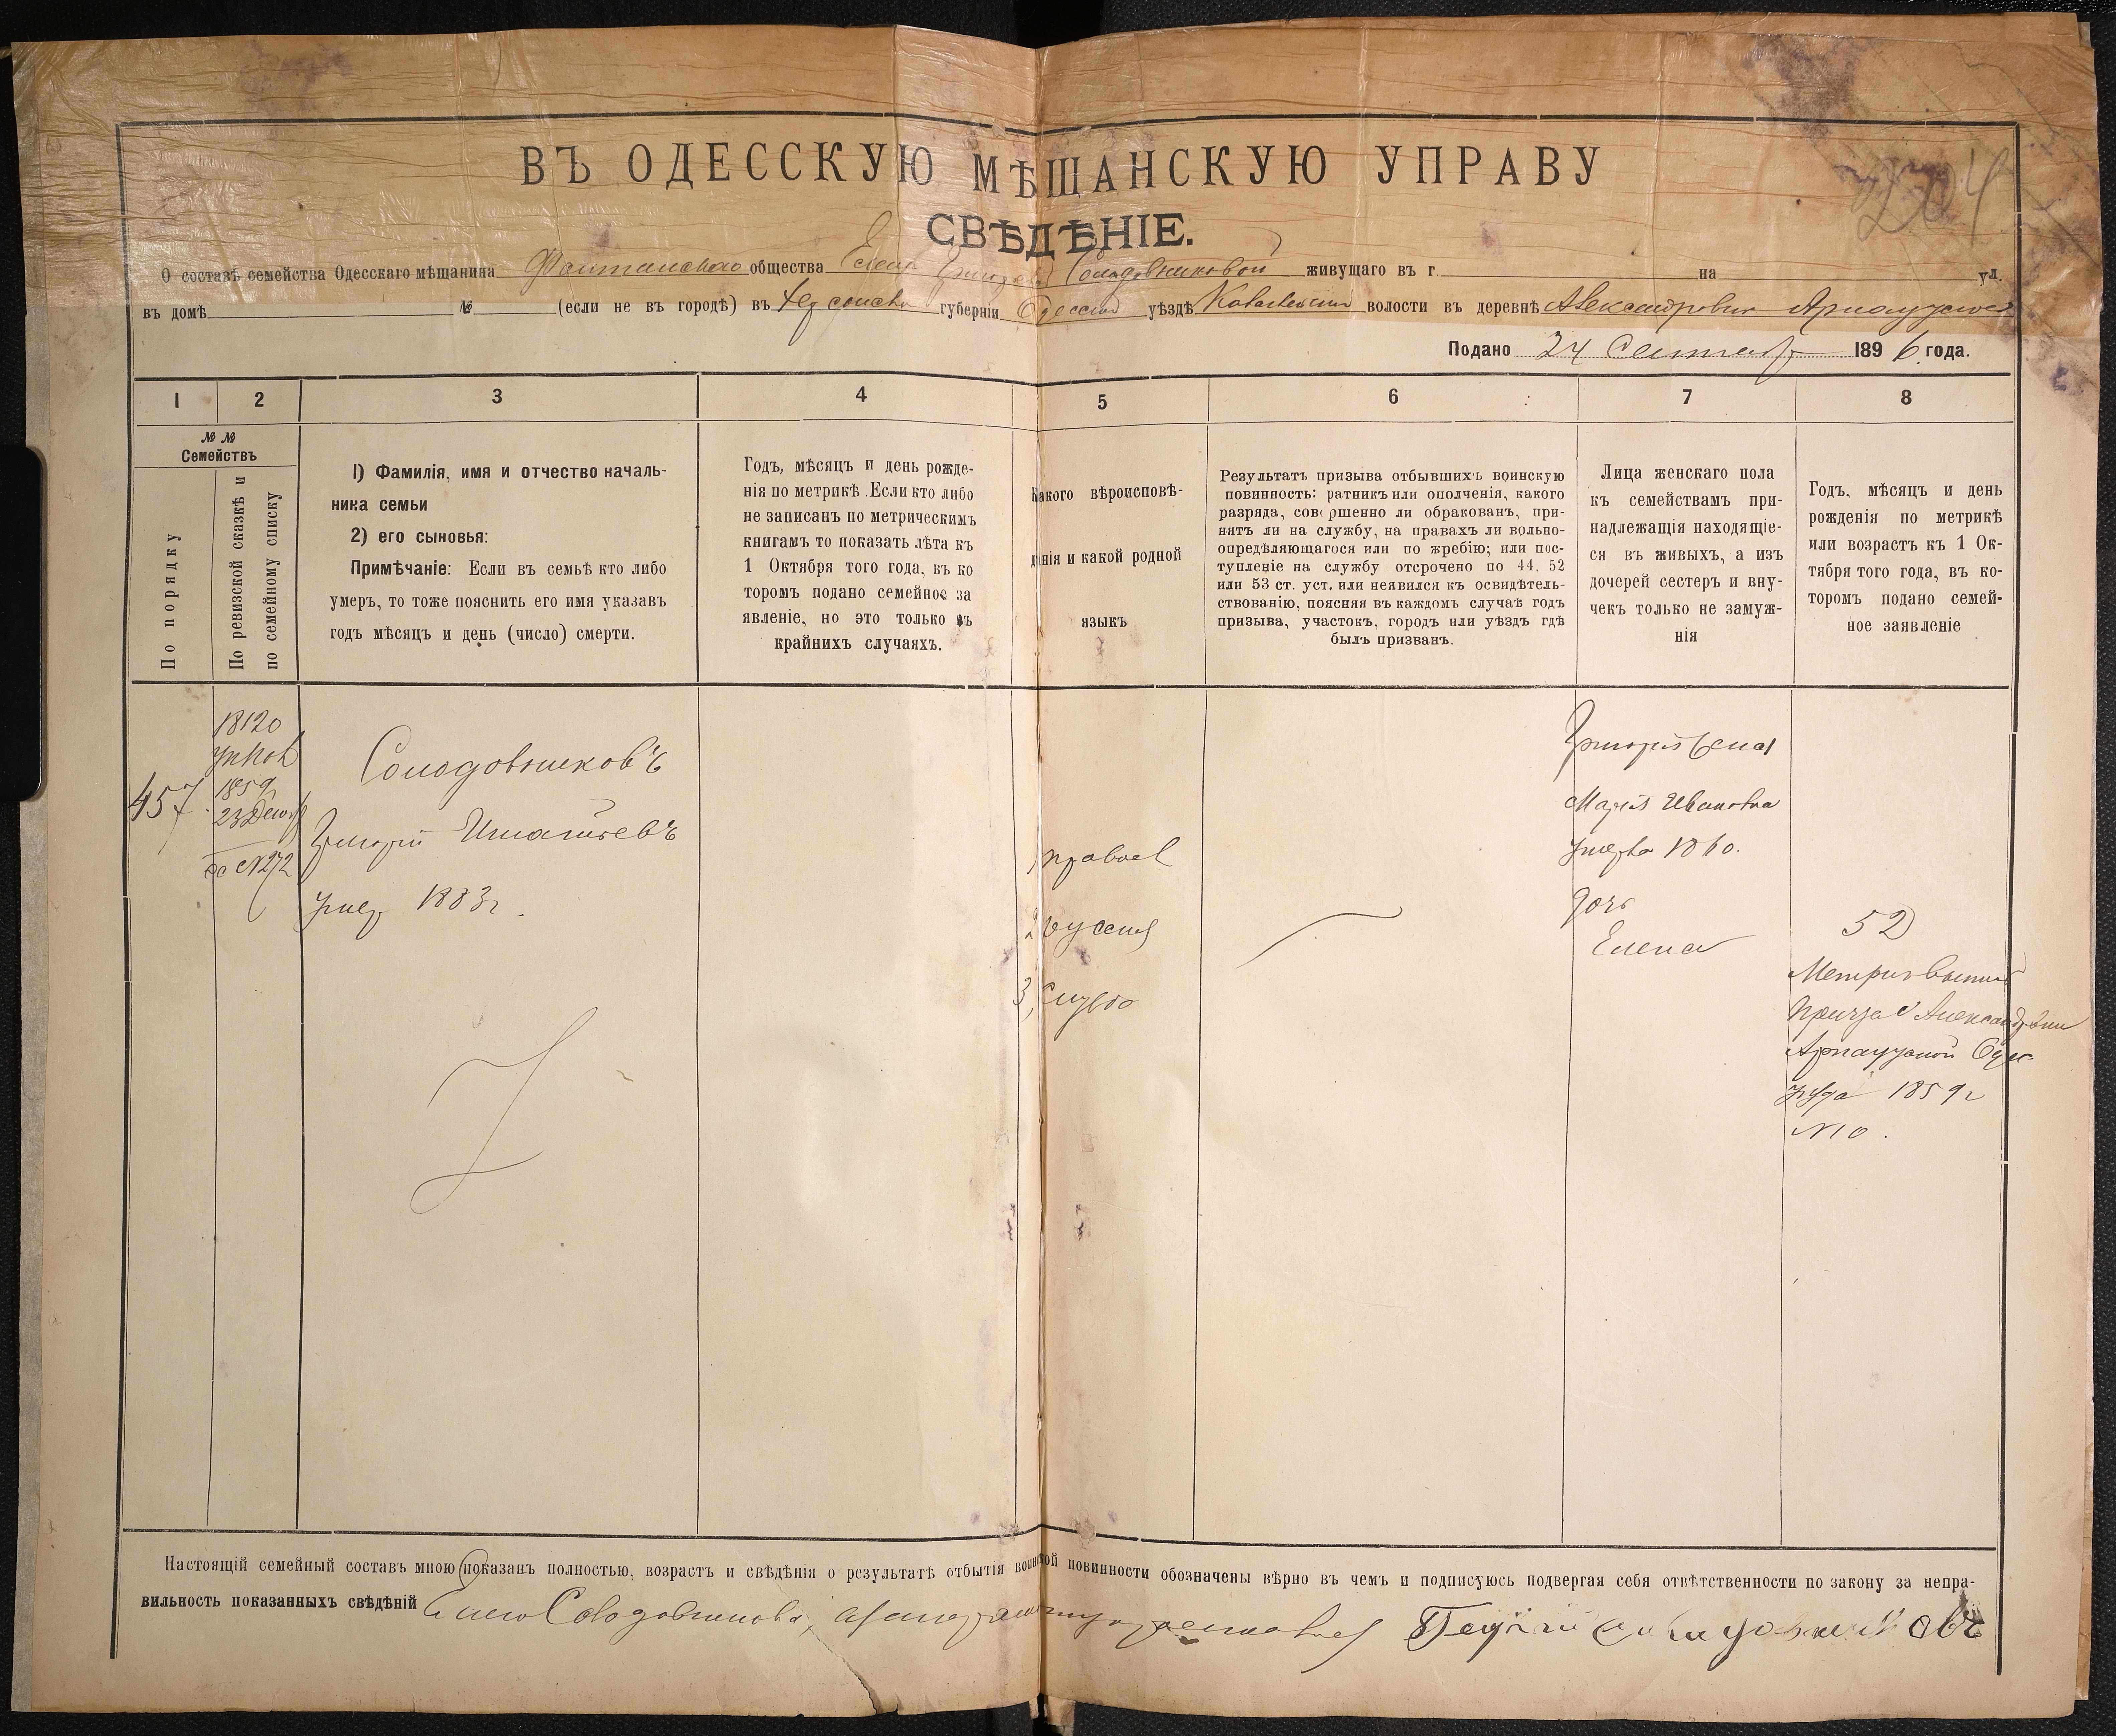 204
ВЪ ОДЕССКУЮ МѢЩАНСКУЮ УПРАВУ
СВѢДѢНІЕ.
О составѣ семейства Одесскаго мѣщанина Фонтанскаго общества Солодовниковой живущаго въ г. на ул.
въ домѣ № (если не въ городѣ) въ Херсонской губерніи Одесскомъ уѣздѣ волости въ деревнѣ
Подано 24 Сентяб 1896 года.
1 2 3 4 5 6 7 8
№ № Семействъ
По порядку
По ревизской сказкѣ и
по семейному списку
1) Фамилія, имя и отчество началь-
ника семьи
2) его сыновья:
Примѣчаніе: Если въ семьѣ кто либо
умеръ, то тоже пояснить его имя указавъ
годъ мѣсяцъ и день (число) смерти.
Годъ, мѣсяцъ и день рожде-
нія по метрикѣ. Если кто либо
не записанъ по метрическимъ
книгамъ то показать лѣта къ
1 Октября того года, въ ко
торомъ подано семейное за
явленіе, но это только въ
крайнихъ случаяхъ.
Какого вѣроисповѣ-
данія и какой родной
языкъ
Результатъ призыва отбывшихъ воинскую
повинность: ратникъ или ополченія, какого
разряда, совершенно ли обракованъ, при-
нятъ ли на службу, на правахъ ли вольно-
опредѣляющагося или по жребію; или пос-
тупленіе на службу отсрочено по 44, 52
или 53 ст. уст. или неявился къ освидѣтель-
ствованію, поясняя въ каждомъ случаѣ годъ
призыва, участокъ, городъ или уѣздъ гдѣ
былъ призванъ.
Лица женскаго пола
къ семействамъ при-
надлежащія находящіе-
ся въ живыхъ, а изъ
дочерей сестеръ и вну-
чекъ только не замуж-
нія
Годъ, мѣсяцъ и день
рожденія по метрикѣ
или возрастъ къ 1 Ок-
тября того года, въ ко-
торомъ подано семей-
ное заявленіе
457
18120
1859
23 Декаб
№ 272
Солодовниковъ
Григорій Игнатьевъ
умер 1883г.
1 правосл
2 русскій
3,
Григорія жена
Марія Ивановна
умерла 1860.
дочь
Елена
52
Арнаутской Одес
уѣзда 1859 г
№ 10.
Настоящій семейный составъ мною показанъ полностью, возрастъ и свѣдѣнія о результатѣ отбытія воинской повинности обозначены вѣрно въ чемъ и подписуюсь подвергая себя отвѣтственности по закону за непра-
вильность показанныхъ свѣдѣній Солодовникова, Солодовниковъ